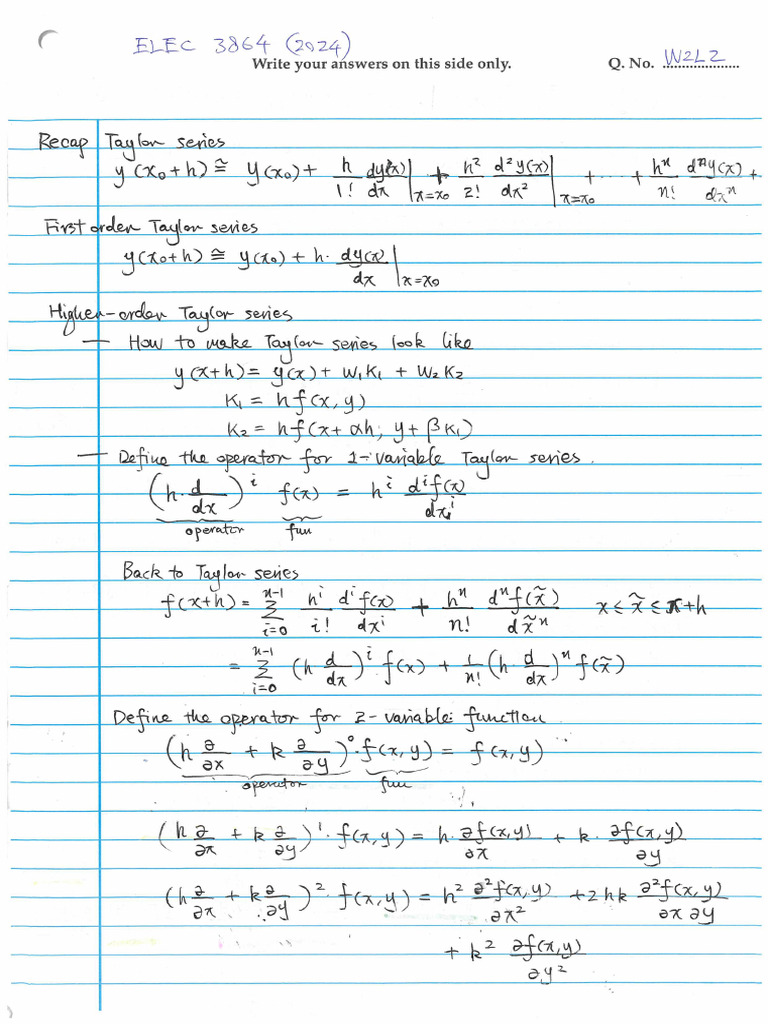 ELEC 3864 (2024)
Write your answers on this side only. Q. No. W2L2
Recap Taylor series
y(x₀+h) ≅ y(x₀) + h/1! dy(x)/dx |x=x₀ + h²/2! d²y(x)/dx² |x=x₀ + ... + hⁿ/n! dⁿy(x)/dxⁿ +
First order Taylor series
y(x₀+h) ≅ y(x₀) + h· dy(x)/dx |x=x₀
Higher-order Taylor series
— How to make Taylor series look like
y(x+h) = y(x) + W₁K₁ + W₂K₂
K₁ = hf(x, y)
K₂ = hf(x+αh, y+βK₁)
— Define the operator for 1-variable Taylor series.
(h·d/dx)ⁱ f(x) = hⁱ dⁱf(x)/dxⁱ
operator fun
Back to Taylor series
f(x+h) = Σ_{i=0}^{n-1} hⁱ/i! dⁱf(x)/dxⁱ + hⁿ/n! dⁿf(x̃)/dx̃ⁿ x ≤ x̃ ≤ x+h
= Σ_{i=0}^{n-1} (h d/dx)ⁱ f(x) + 1/n! (h d/dx)ⁿ f(x̃)
Define the operator for 2-variable function
(h ∂/∂x + k ∂/∂y)⁰·f(x,y) = f(x,y)
operator fun
(h ∂/∂x + k ∂/∂y)¹·f(x,y) = h·∂f(x,y)/∂x + k·∂f(x,y)/∂y
(h ∂/∂x + k ∂/∂y)²·f(x,y) = h² ∂²f(x,y)/∂x² + 2hk ∂²f(x,y)/∂x∂y
+ k² ∂f(x,y)/∂y²